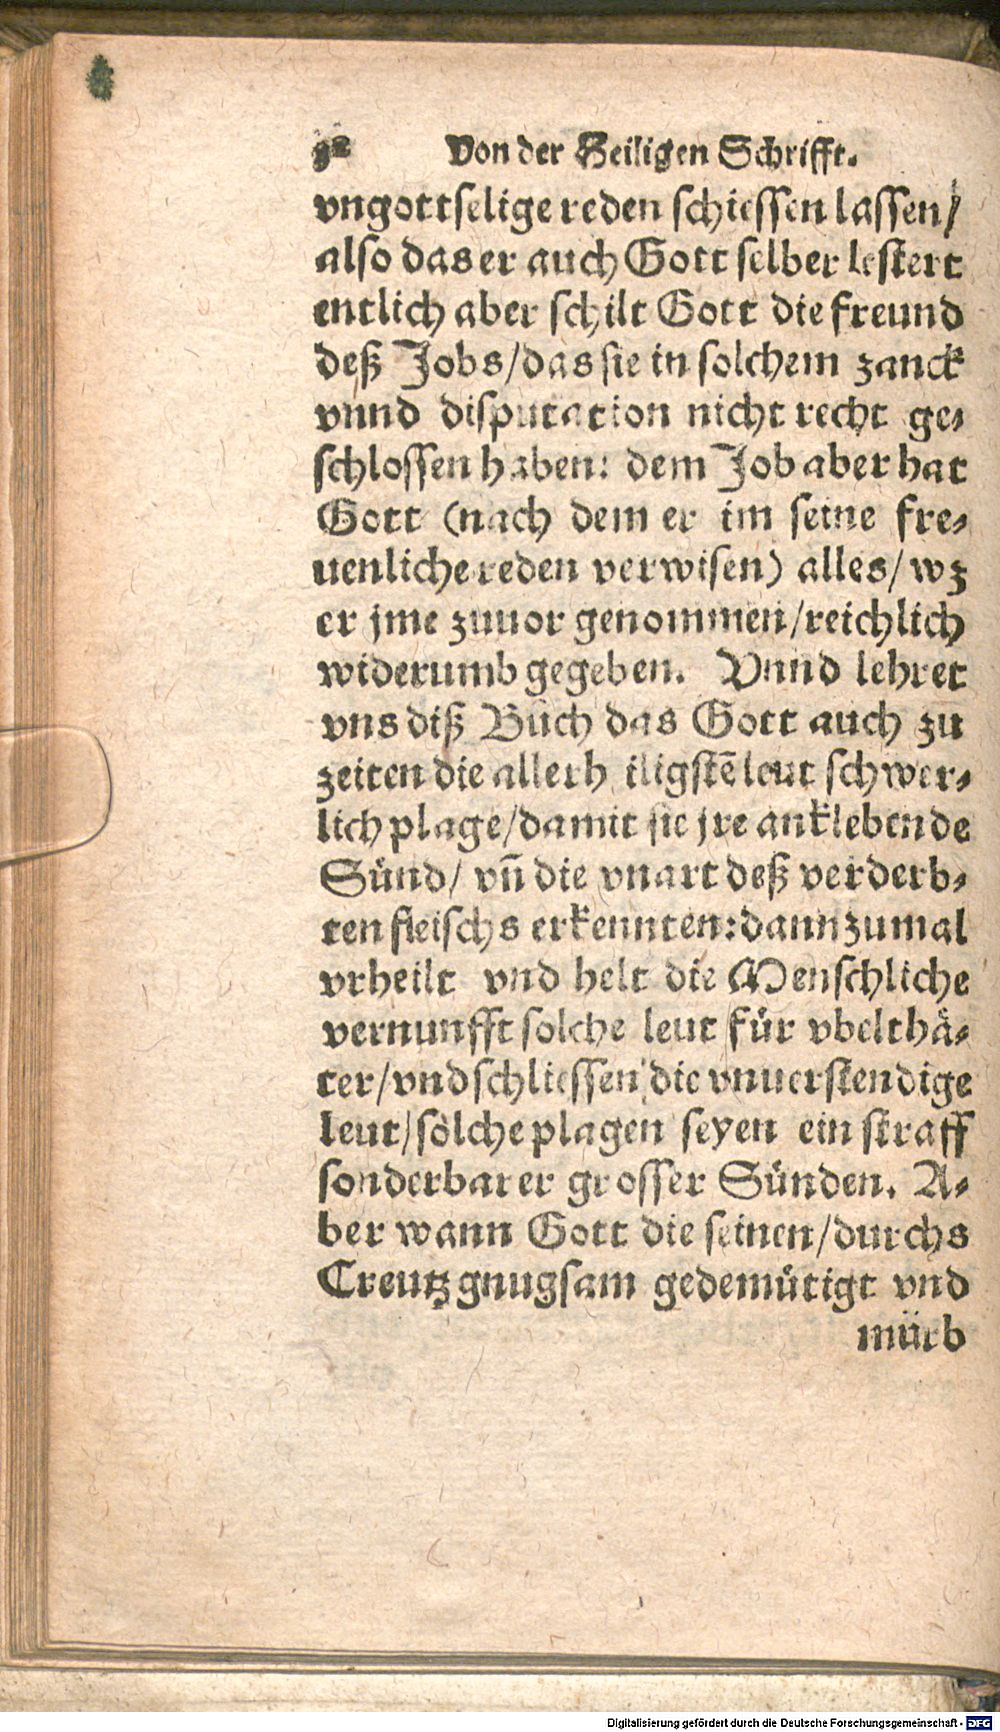 32 Von der Heiligen Schrifft.
vngottselige reden schiessen lassen/
also das er auch Gott selber lestert
entlich aber schilt Gott die freund
deß Jobs/das sie in solchem zanck
vnnd disputation nicht recht ge-
schlossen haben: dem Job aber hat
Gott (nach dem er im seine fre-
uenliche reden verwisen) alles/ wz
er jme zuuor genommen/reichlich
widerumb gegeben. Vnnd lehret
vns diß Buch das Gott auch zu
zeiten die allerh iligstē leut schwer-
lich plage/damit sie jre anklebende
Sünd/ vñ die vnart deß verderb-
ten fleischs erkennten: dannzumal
vrheilt vnd helt die Menschliche
vernunfft solche leut für vbelthä-
ter/vnd schliessen die vnuerstendige
leut/solche plagen seyen ein straff
sonderbarer grosser Sünden. A-
ber wann Gott die seinen/durchs
Creutz gnugsam gedemütigt vnd
mürb
Digitalisierung gefördert durch die Deutsche Forschungsgemeinschaft - DFG